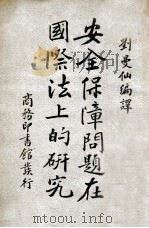 劉曼仙編譯
安全保障問題在
國際法上的硏究
商務印書館發行
mtoou.info